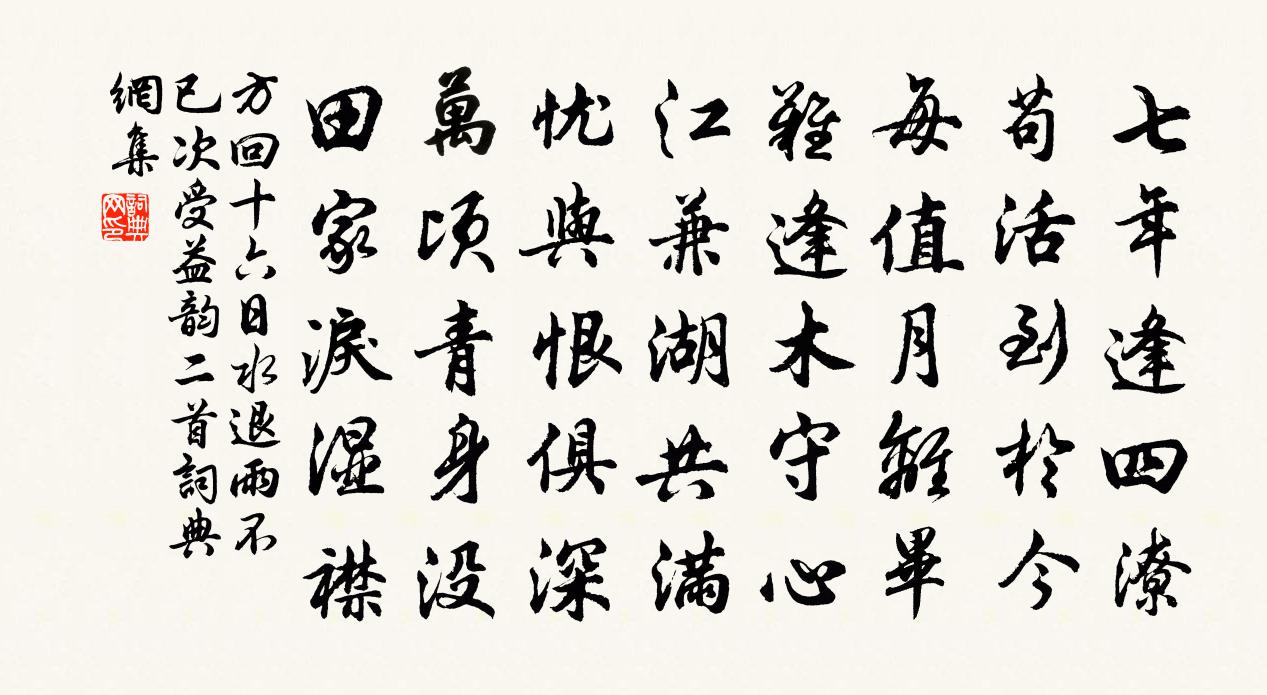 七年逢四潦
苟活到於今
每值月離畢
難逢木守心
江兼湖共滿
忧與恨俱深
萬頃青身没
田家淚湿襟
方回十六日水退雨不
已次受益韵二首詞典
網集
詞典网印